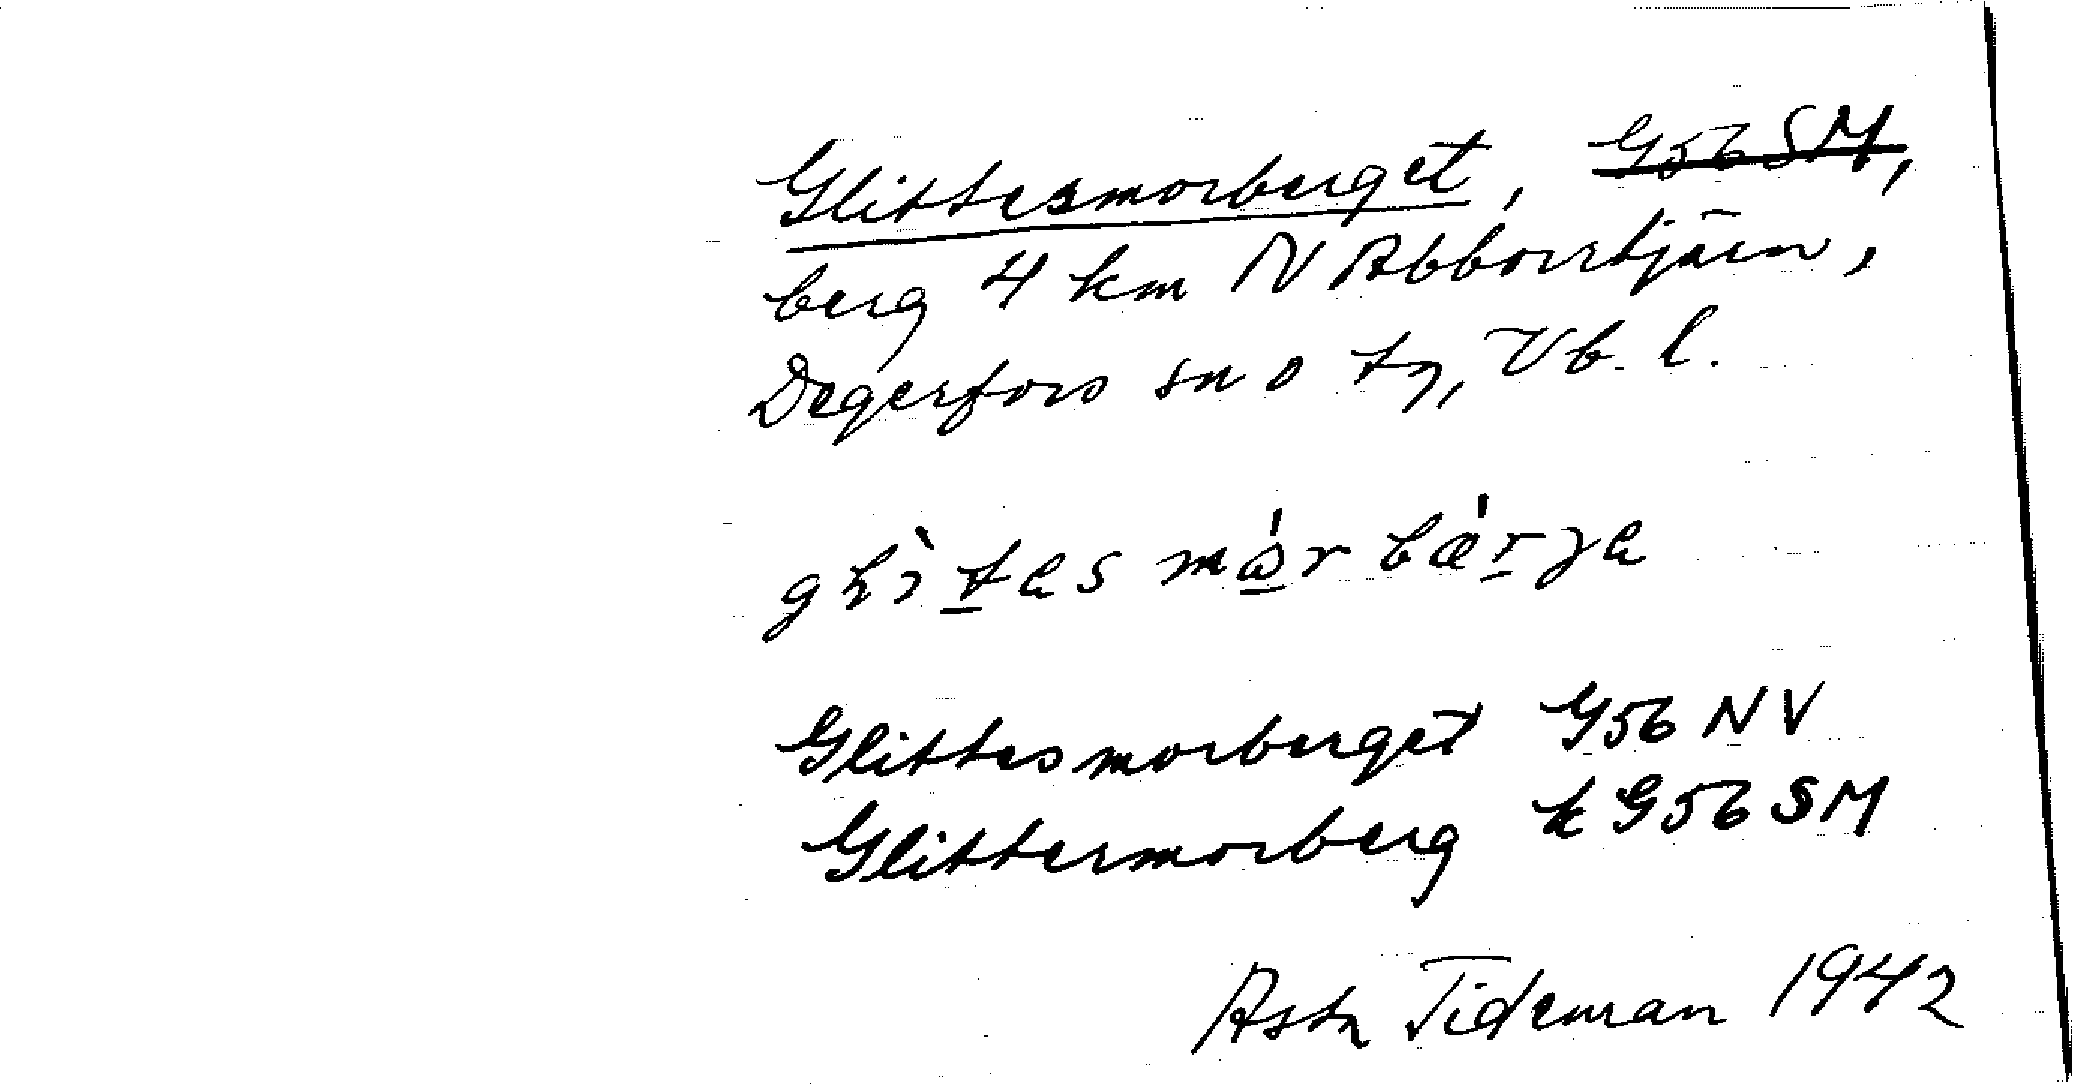 Glittesmorberget, G56 SM,
berg 4 km N Abborrtjärn,
Degerfors sn o tg, Vb. l.
Glittesmorberget G56 NV
Glittermorberg k G56 SM
Astr Tideman 1942